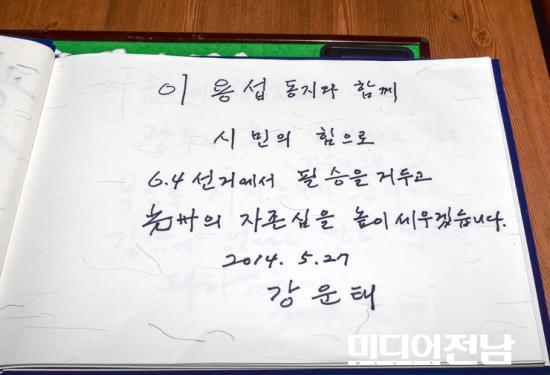 이용섭 동지과 함께
시민의 힘으로
6.4 선거에서 필승을 거두고
光州의 자존심을 높이 세우겠습니다.
2014. 5. 27
강운태
미디어전남